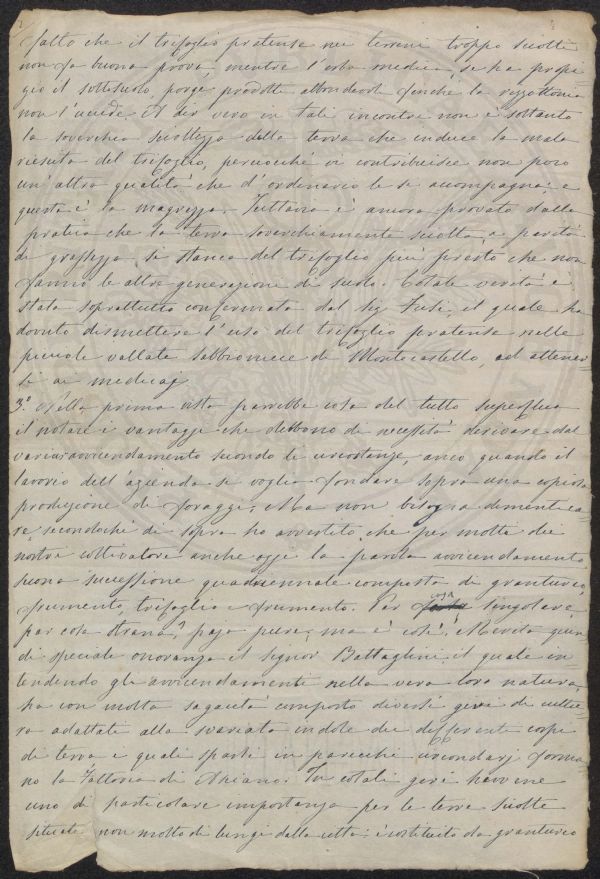 fatto che il trifoglio pratense nei terreni troppo sciolti
non fa buona prova, mentre l'erba medica, se ha propi-
zio il sottosuolo, porge prodotti abbondevoli finché la rizottonia
non l'uccide. A dir vero in tali incontri non è soltanto
la soverchia scioltezza della terra che induce la mala
riescita del trifoglio, perciocché vi contribuisce non poco
un'altra qualità che d'ordinario le si accompagna: e
questa è la magrezza. Tuttavia è ancora provato dalla
pratica che la terra soverchiamente sciolta, a parità
di grassezza si stanca del trifoglio più presto che non
fanno le altre generazioni di suolo. Cotale verità è
stata soprattutto confermata dal Sig. Fusi, il quale ha
dovuto dismettere l'uso del trifoglio pratense nelle
piccole vallate sabbionicce di Montecastello, ed attener-
si ai medicaj.
3.º Alla prima vista parrebbe cosa del tutto superflua
il notare i vantaggi che debbono di necessità derivare dal
variar avvicendamento secondo le circostanze, anco quando il
lavorio dell'azienda si voglia fondare sopra una copiosa
produzione di foraggi. Ma non bisogna dimentica-
re, secondoché di sopra ho avvertito, che per molti dei
nostri coltivatori anche oggi la parola avvicendamento
suona successione quadriennale composta di granturco,
frumento, trifoglio e frumento. Par cosa singolare,
par cosa strana, paja pure, ma è così. Merita quin-
di speciale onoranza il signor Battaglini, il quale in-
tendendo gli avvicendamenti nella vera loro natura,
ha con molta sagacità composto diversi giri di cultu-
ra adattati alla svariata indole dei differenti corpi
di terra i quali sparti in parecchi circondarj forma-
no la Fattoria di Ahiano. Tra cotali giri havvene
uno di particolare importanza per le terre sciolte
situate non molto di lungi dalla città: è costituito da granturco